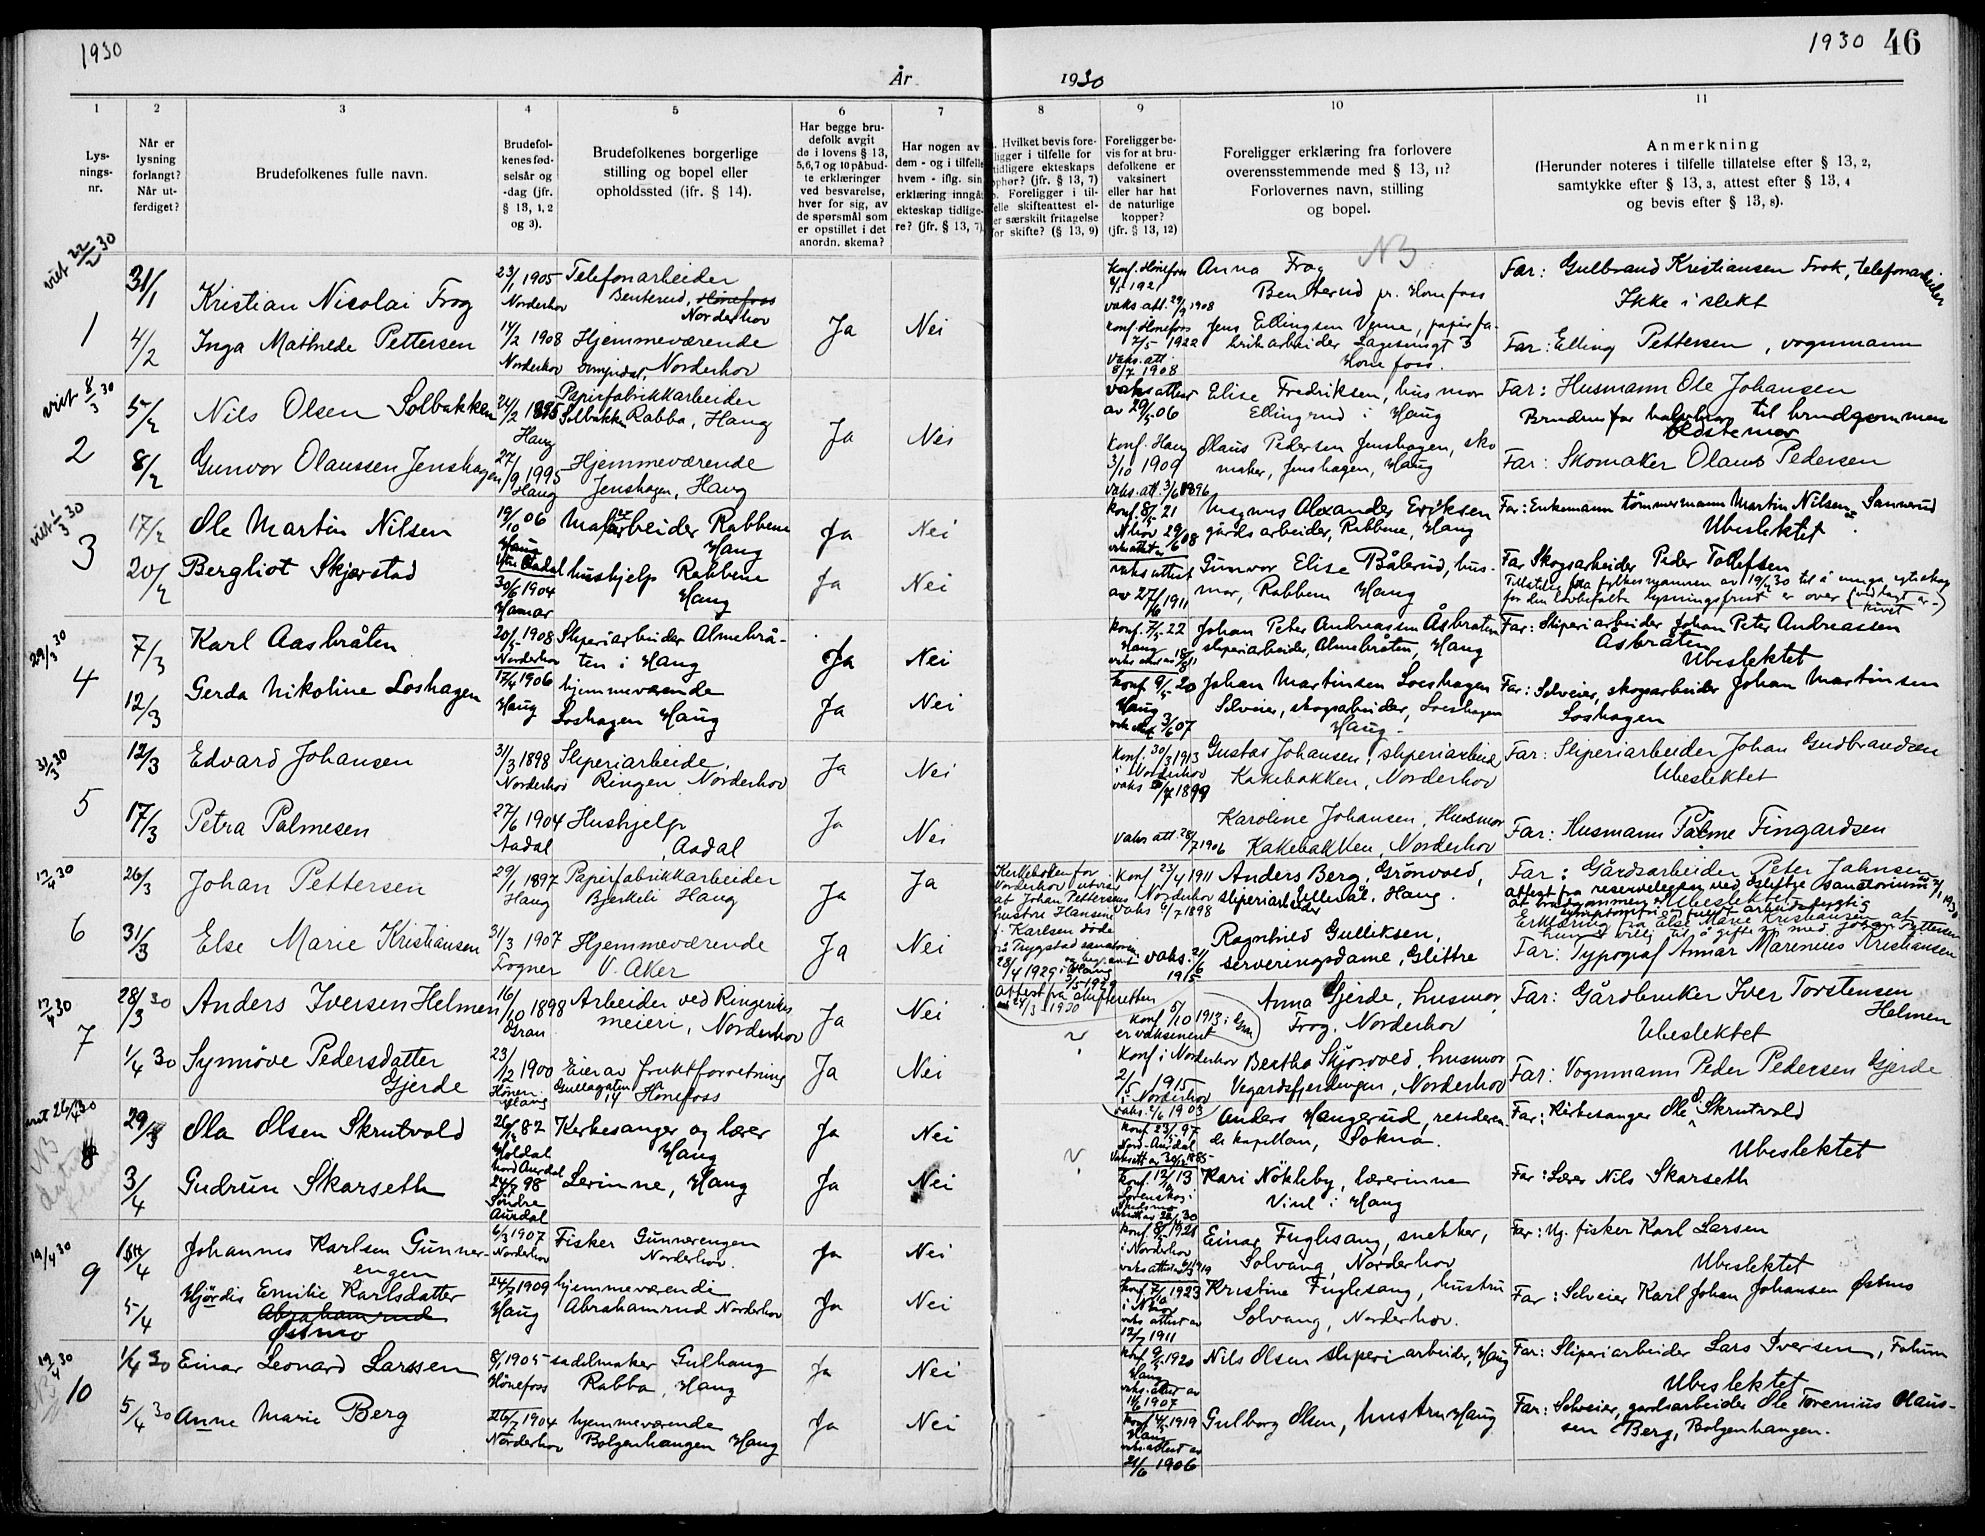 1930
1930 46
År 1930
1 2 3 4 5 6 7 8 9 10 11
Lys-
nings-
nr.
Når er
lysning
forlangt?
Når ut-
ferdiget?
Brudefolkenes fulle navn.
Brudefol-
kenes fød-
selsår og
-dag (jfr.
§ 13, 1, 2
og 3).
Brudefolkenes borgerlige
stilling og bopel eller
opholdssted (jfr. § 14).
Har begge bru-
defolk avgit
de i lovens § 13,
5,6,7 og 10 påbud-
te erklæringer
ved besvarelse,
hver for sig, av
de spørsmål som
er opstillet i det
anordn. skema?
Har nogen av
dem - og i tilfelle
hvem - iflg. sin
erklæring inngå
ekteskap tidlige-
re? (jfr. § 13, 7)
. Hvilket bevis fore-
ligger i tilfelle for
tidligere ekteskaps
ophør? (jfr. § 13, 7)
. Foreligger i til-
felle skifteattest el-
er særskilt fritagelse
for skifte? (§ 13, 9)
Foreligger be-
vis for at bru-
defolkene er
vaksinert
eller har hat
de naturlige
kopper?
(jfr. § 13, 12)
Foreligger erklæring fra forlovere
overensstemmende med § 13, 11?
Forlovernes navn, stilling
og bopel.
Anmerkning
(Herunder noteres i tilfelle tillatelse efter § 13, 2,
samtykke efter § 13, 3, attest efter § 13, 4
og bevis efter § 13, 8).
viet 22/2 30
1
31/1
Kristian Nicolai Frog
23/1 1905
Norderhov
Telefonarbeider
Benterud, Hönefoss
Norderhov
Ja Nei
Konf. Hönefoss
1921
vaks. att. 29/9 1908
Anna Frog NB
Benterud pr. Hönefoss
Far: Gulbrand Kristiansen Frok, telefonarbeider
Ikke i slekt
4/2
Inga Mathilde Pettersen
14/2 1908
Norderhov
Hjemmeværende
Norderhov
Konf. Hönefoss
7/5 1922
vaks. att.
8/7 1908
Jens Ellingsen Verne, papirfa-
brikarbeider
Hönefoss.
Far: Elling Pettersen, vognmann
viet 8/3 30
2
5/2
Nils Olsen Solbakken
24/2 1895
Haug
Papirfabrikkarbeider
Solbakken Rabba, Haug
Ja Nei
vaksattest
av 29/5 06
Elise Fredriksen, husmor
Ellingrud i Haug
Far: Husmann Ole Johansen
Brudens far halvbror til brudgommens
bestemor
8/2
Gunvor Olaussen Jenshagen
27/9 1995
Haug
Hjemmeværende
Jenshagen, Haug
Konf. Haug
3/10 1909
vaks. att. 3/6 1896
Olaus Pedersen Jenshagen, sko
maker, Jenshagen, Haug
Far: Skomaker Olaus Pedersen
viet 1/3 30
3
17/2
Ole Martin Nilsen
19/10 06
Haug
arbeider Rabbene
Haug
Ja Nei
Konf. 8/5 21
Magnus Alexander Eriksen
gårdsarbeider, Rabbene, Haug
Far: Enkemann tømmermann Martin Nilsen Sannerud
Ubeslektet
20/2
Bergliot Skjærstad
30/6 1904
Hamar
hushjelp Rabbene
Haug
Ja Nei
vaksattest
av 27/6 1911
Gunvor Elise Bålerud, hus-
mor, Rabbene Haug
Far Skogsarbeider Peder Tollefsen
Tillatelse fra fylkesmannen av 19/2 30 til å innga egteskap
før den lovbefalte lysningsfrist er over (vedlagt ar-
kivet)
29/3 30
4
7/3
Karl Aasbråten
20/5 1908
Norderhov
Sliperiarbeider Almebrå-
ten i Haug
Ja Nei
Konf. 7/5 22
Haug
Johan Peter Andreassen Åsbråten
sliperiarbeider, Almebråten, Haug
Far: Sliperiarbeider Johan Peter Andreassen
Asbråten
Ubeslektet
12/3
Gerda Nikoline Loshagen
17/4 1906
Haug
hjemmeværende
Loshagen Haug
Ja Nei
Konf. 9/5 20
Haug
Johan Martinsen Loeshagen
Selveier, skogsarbeider, Loeshagen
Haug.
Far: Selveier, skogsarbeider Johan Martinsen
Loshagen
31/3 30
5
12/3
Edvard Johansen
31/3 1898
Norderhov
Sliperiarbeide,
Ringen Norderhov
Ja Nei
Konf. 30/3 1913
i Norderhov
Gustav Johansen, sliperiarbeid
Kakebakken, Norderhov
Far: Sliperiarbeider Johan Gudbrandsen
Ubeslektet
17/3
Petra Palmesen
27/6 1904
Aadal
Hushjelp
Aadal
Ja Nei
vaks. att. 28/7 1906
Karoline Johansen, Husmor
Kakebakken, Norderhov
Far: Husmann Palme Fingardsen
12/4 30
6
26/3
Johan Pettersen
29/1 1897
Haug
Papirfabrikkarbeider
Bjerkeli Haug
Ja Ja
Kirkeboken for
Norderhov utviser
at Johan Pettersens
hustru Hansine
f. Karlsen døde
28/4 1929 i Haug
Attest fra skifteretten
1930
Konf 23/4 1911
Norderhov
vaks 6/7 1898
Anders Berg, Grönvold,
sliperiarbeider Ullerål, Haug.
Far: Gårdsarbeider Peter Jahnsen
Ubeslektet
Erklæring fra Else Marie Kristiansen at
hun er villig til å gifte sig med Johan Pettersen
31/3
Else Marie Kristiansen
31/3 1907
Frogner
Hjemmeværende
V. Aker
Ja Nei
vaks. 21/6
1915
Ragnhild Gulliksen,
serveringsdame, Glittre
Far: Typograf Annar Marenius Kristiansen
12/4 30
7
28/3 30
Anders Iversen Helmen
16/10 1898
Gran
Arbeider ved Ringerikes
meieri, Norderhov
Ja Nei
Konf 5/10 1913 i Gran
er vaksinert
Anna Gjerde, husmor,
Frog. Norderhov
Far: Gårdbruker Iver Torstensen
Helmen
Ubeslektet
1/4 30
Synnöve Pedersdatter
Gjerde
23/2 1900
Hönen
Haug
Eier av fruktforretning
Hönefoss
Ja Nei
Konf i Norderhov
1915
i Norderhov
vaks. 2/6 1903
Bertha Skjorvold, husmor
Vegardsfjerdingen, Norderhov
Far: Vognmann Peder Pedersen Gjerde
viet 26/4 30
NB
8
29/3
Ola Olsen Skrutvold
26/12 82
Nord Aurdal
Kirkesanger og lærer
Haug
Ja Nei
Konf 23/5 97
Nord-Aurdal
Anders Haugerud, resideren
de kapellan, Sokna.
Far: Kirkesanger Ole O. Skrutvold
Ubeslektet
3/4
Gudrun Skarseth
24/7 98
Söndre
Aurdal
Lerinne, Haug
Ja Nei
Konf. 12/10 13
Kari Nökleby, lærerinne
Vinl i Haug
Far: Lærer Nils Skarseth
19/4 30
9
Johannes Karlsen Gunner-
engen
6/3 1907
Norderhov
Fisker Gunnerengen
Norderhov.
Ja Nei
Konf. 8/5 1921
i Norderhov
Einar Fuglesang, snekker,
Solvang, Norderhov
Far: Ug. fisker Karl Larsen
Ubeslektet
5/4
Hjördis Emilie Karlsdatter
Abrahamrud
Østmo
24/7 1909
Haug
hjemmeværende
Abrahamrud Norderhov
Ja Nei
1923
vaks attest av
12/7 1911
Kristine Fuglesang, hustru
Solvang, Norderhov.
Far: Selveier Karl Johan Johansen Østmo
19/4 30
10
1/4 30
Einar Leonard Larssen
8/1 1905
Hönefoss
sadelmaker Gulhaug
Rabba, Haug
Ja Nei
Konf. 9/5 1920
Haug
vaks. attest av
11/6 1907
Nils Olsen sliperiarbeider, Haug
Far: Sliperiarbeider Lars Iversen, Falum
Ubeslektet
5/4 30
Anne Marie Berg
26/7 1904
Norderhov
hjemmeværende
Bolgenhaugen Haug
Ja Nei
1919
Haug
vaks. attest av
21/6 1906
Gulborg Olsen, hustru Haug
Far: Selveier, gardsarbeider Ole Torenius Olaus-
sen Berg, Bolgenhaugen.